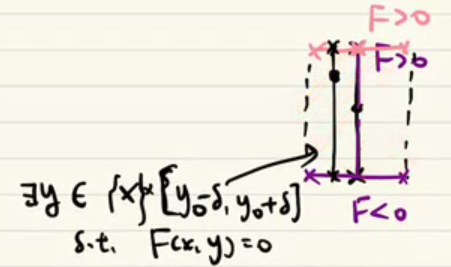 F>0
F>0
∃y ∈ {x}×[y₀-δ, y₀+δ]
s.t. F(x, y)=0
F<0